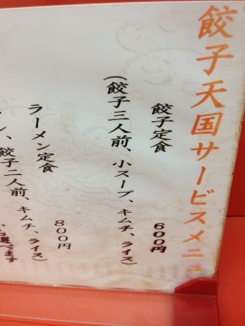 餃子天国サービスメニ
餃子定食 600円
(餃子三人前、小スープ、キムチ、ライス)
ラーメン定食 800円
餃子二人前、キムチ、ライス)